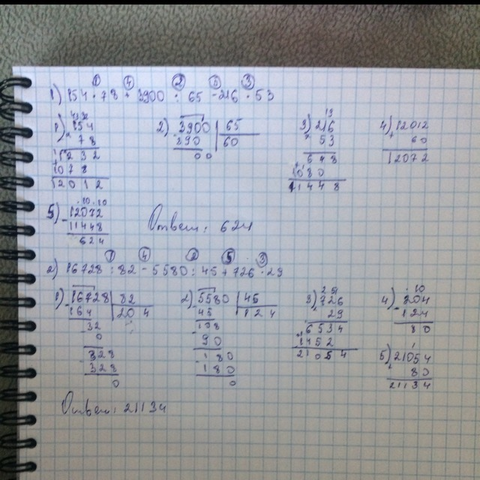 ① ④ ② ⑤ ③
1) 154 · 78 + 3900 : 65 - 216 · 53
1) 154 2) 3900 | 65 3) 216 4) 12012
78 390 60 53 60
1232 00 648 12072
1078 1080
12012 11448
5) 12072 Ответ: 624
11448
624
① ④ ② ⑤ ③
2) 16728 : 82 - 5580 : 45 + 726 · 29
1) 16728 | 82 2) 5580 | 45 3) 726 4) 204
164 204 45 124 29 124
32 108 6534 80
0 90 1452
328 180 21054 5) 21054
328 180 80
0 0 21134
Ответ: 21134